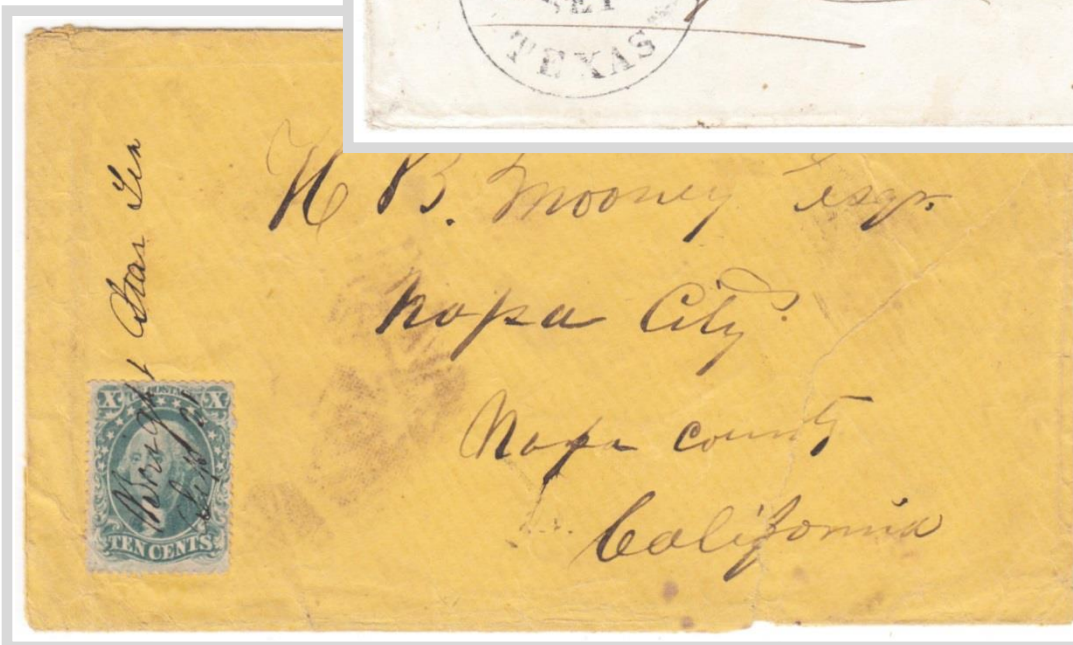 TEXAS
H B. Mooney Esqr.
Napa City
Napa County
California
X POSTAGE X
TEN CENTS
Sept